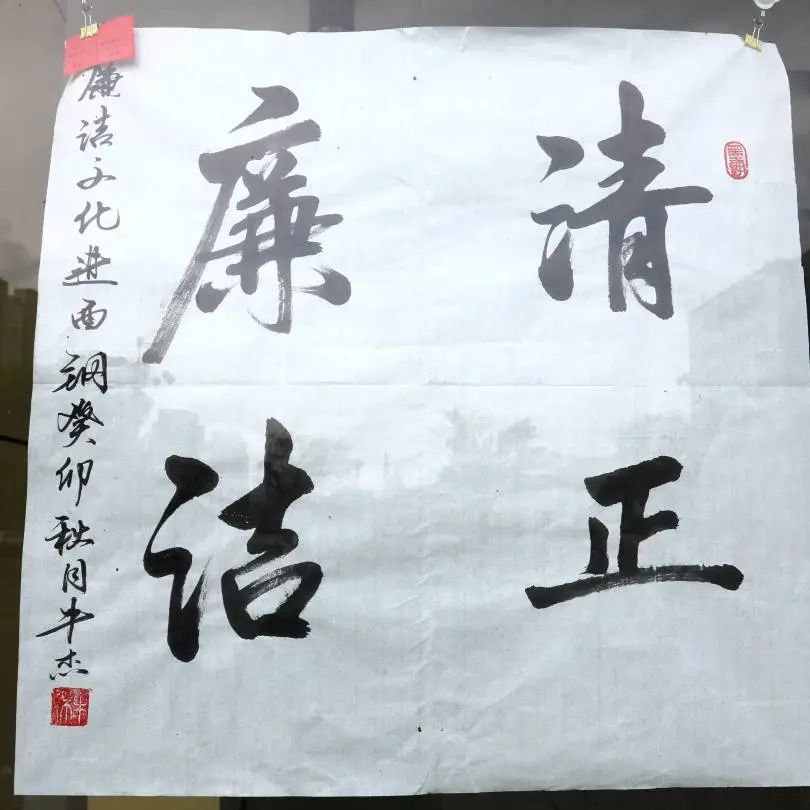 清正
廉洁
廉洁文化進西钢癸卯秋月牛杰